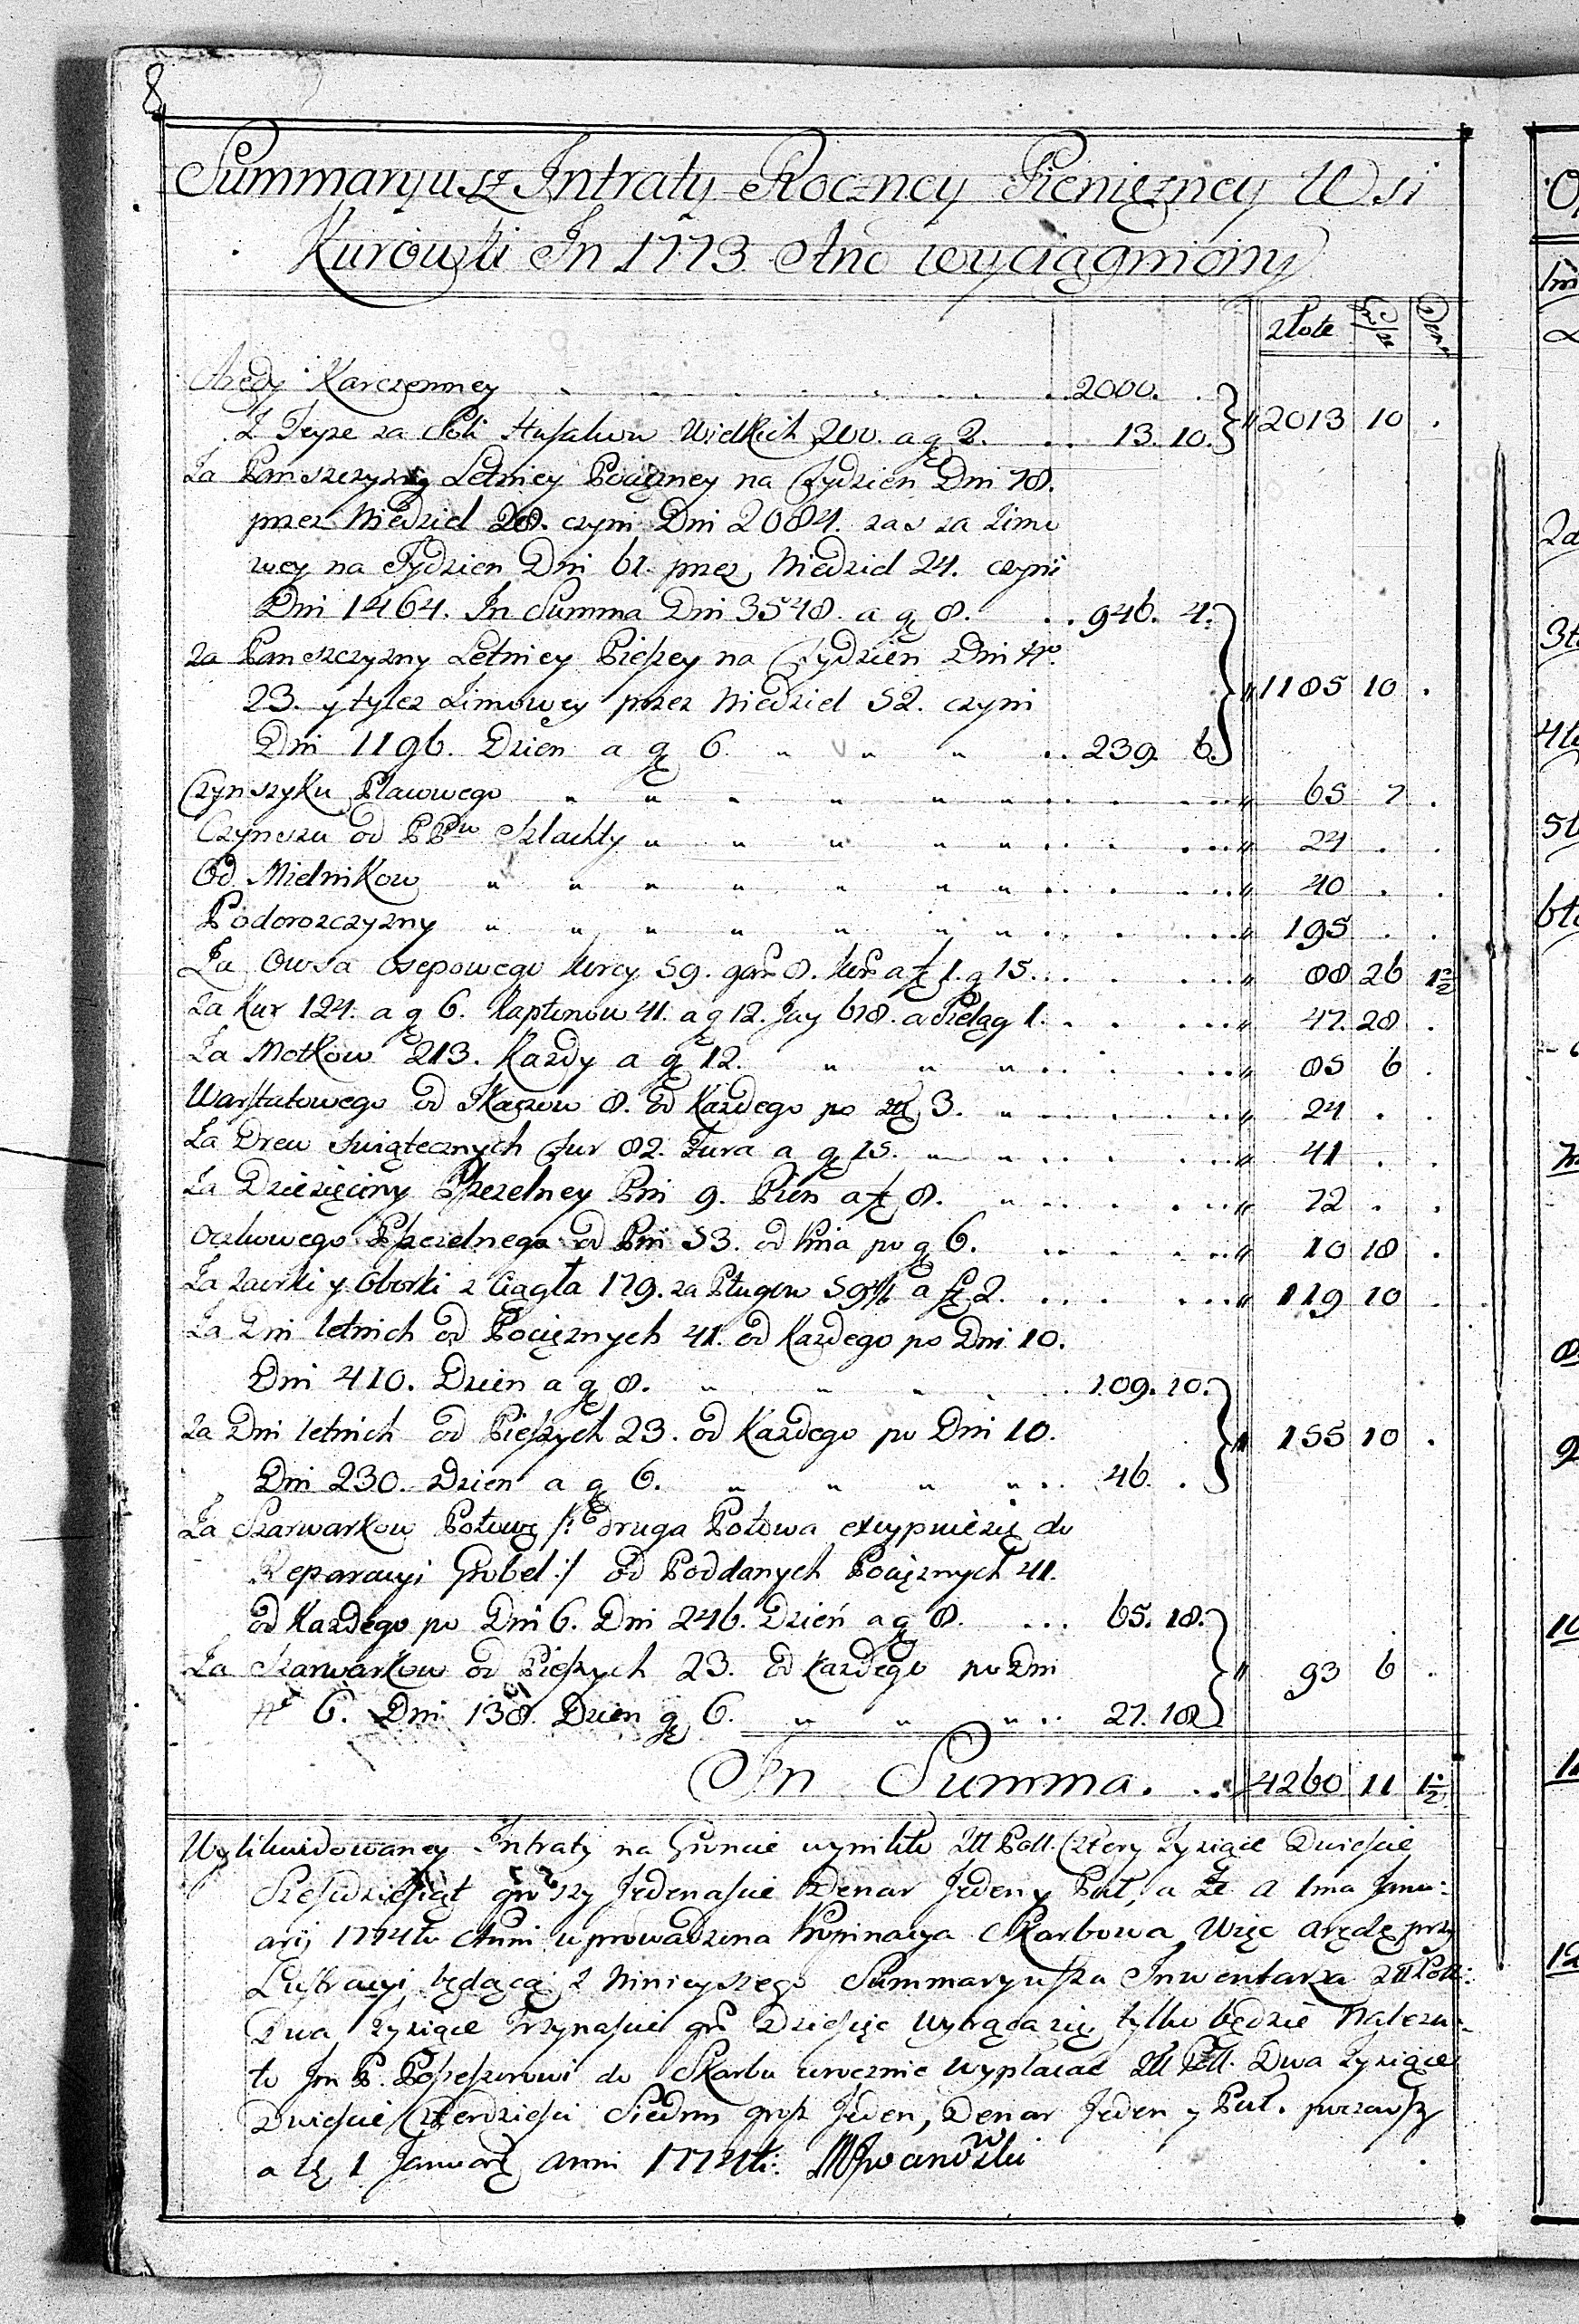 8
Summaryusz Intraty Roczney Pieniężney Wsi
Kurówki In 1773 Ano wyciągniony
złote
Den
Arędy Karczenney 2000.
Z Teyże za Soli Husalwu Wielkich 200. a gr 2. 13. 10. 2013 10 .
Za Panszczyzny Letniey Pociężney na Tydzien Dni 78.
przez Niedziel 28. czyni Dni 2084. zas za Zimo
wey na Tydzien Dni 61. przez Niedziel 24. czyni
Dni 1464. In Summa Dni 3548. a gr 8. 946. 4.
za Panszczyzny Letniey Pieszey na Tydzien Dni Nro
23. y tylez Zimowey przez Niedziel 52. czyni 1185 10 .
Dni 1196. Dzien a gr 6. 239. 6.
Czynszyku Pławowego 65 7 .
Czynszu od PPw Szlachty 24 . .
Od Mielnikow 40 . .
Podorozczyzny 195 . .
Za Owsa Osepowego korcy 59. gar 8. kor a zł 1. g 15. 88 26 1 1/2
Za Kur 124. a gr 6. Kapłonow 41. a gr 12. Jay 618. a Szeląg 1. 47. 28 .
Za Motkow 213. Kazdy a gr 12. 85 6 .
Warstatowego od Tkaczow 8. od Kazdego po zł 3. 24 . .
Za Drew swiątecznych Fur 82. Fura a gr 15. 41 . .
Za Dziesięciny Pszczelney Pni 9. Pień a zł 8. 72 . .
Oczkowego Pszczelnego od Pni 53. od Pnia po gr 6. 10 18 .
Za Zaorki y Oborki z Ciągła 179. za Pługow 59 a zł 2. 119 10 .
Za Dni letnich od Pociężnych 41. od Kazdego po Dni 10.
Dni 410. Dzien a gr 8. 109. 10.
za Dni letnich od Pieszych 23. od Kazdego po Dni 10. 155 10 .
Dni 230. Dzien a gr 6. 46. .
Za Szarwarkow Połowę /: druga Połowa excypuie się do
Reparacyi Grobel :/ od Poddanych Pociężnych 41.
od Kazdego po Dni 6. Dni 246. Dzień a gr 8. 65. 18.
Za Szarwarkow od Pieszych 23. od Kazdego po Dni 93 6 .
Nro 6. Dni 138. Dzien gr 6. 27. 18
In Summa. 4260 11 1 1/2
Wylikwidowaney Intraty na Gruncie wynikło Zł Poll. Cztery Tysiące Dwieście
Szescdziesiąt groszy Jedenascie Denar Jeden y Puł, a Ze a 1ma Janu:
arij 1774to Anni wprowadzona Propinacya Skarbowa Więc arędę przy
Lustracyi będącą z Ninieyszego Summaryusza Inwentarza Zł Poll:
Dwa Tysiące Trzynascie gro Dziesięc wytrąca się tylko będzie należa-
ło Jm P. Possesorowi do Skarbu corocznie wypłacać Zł Poll. Dwa Tysiące
Dwieście Czterdzieści Siedm grosz Jeden, Denar Jeden y Puł. począwszy
a 1 Januarij Anni 1774to: MIwanowski